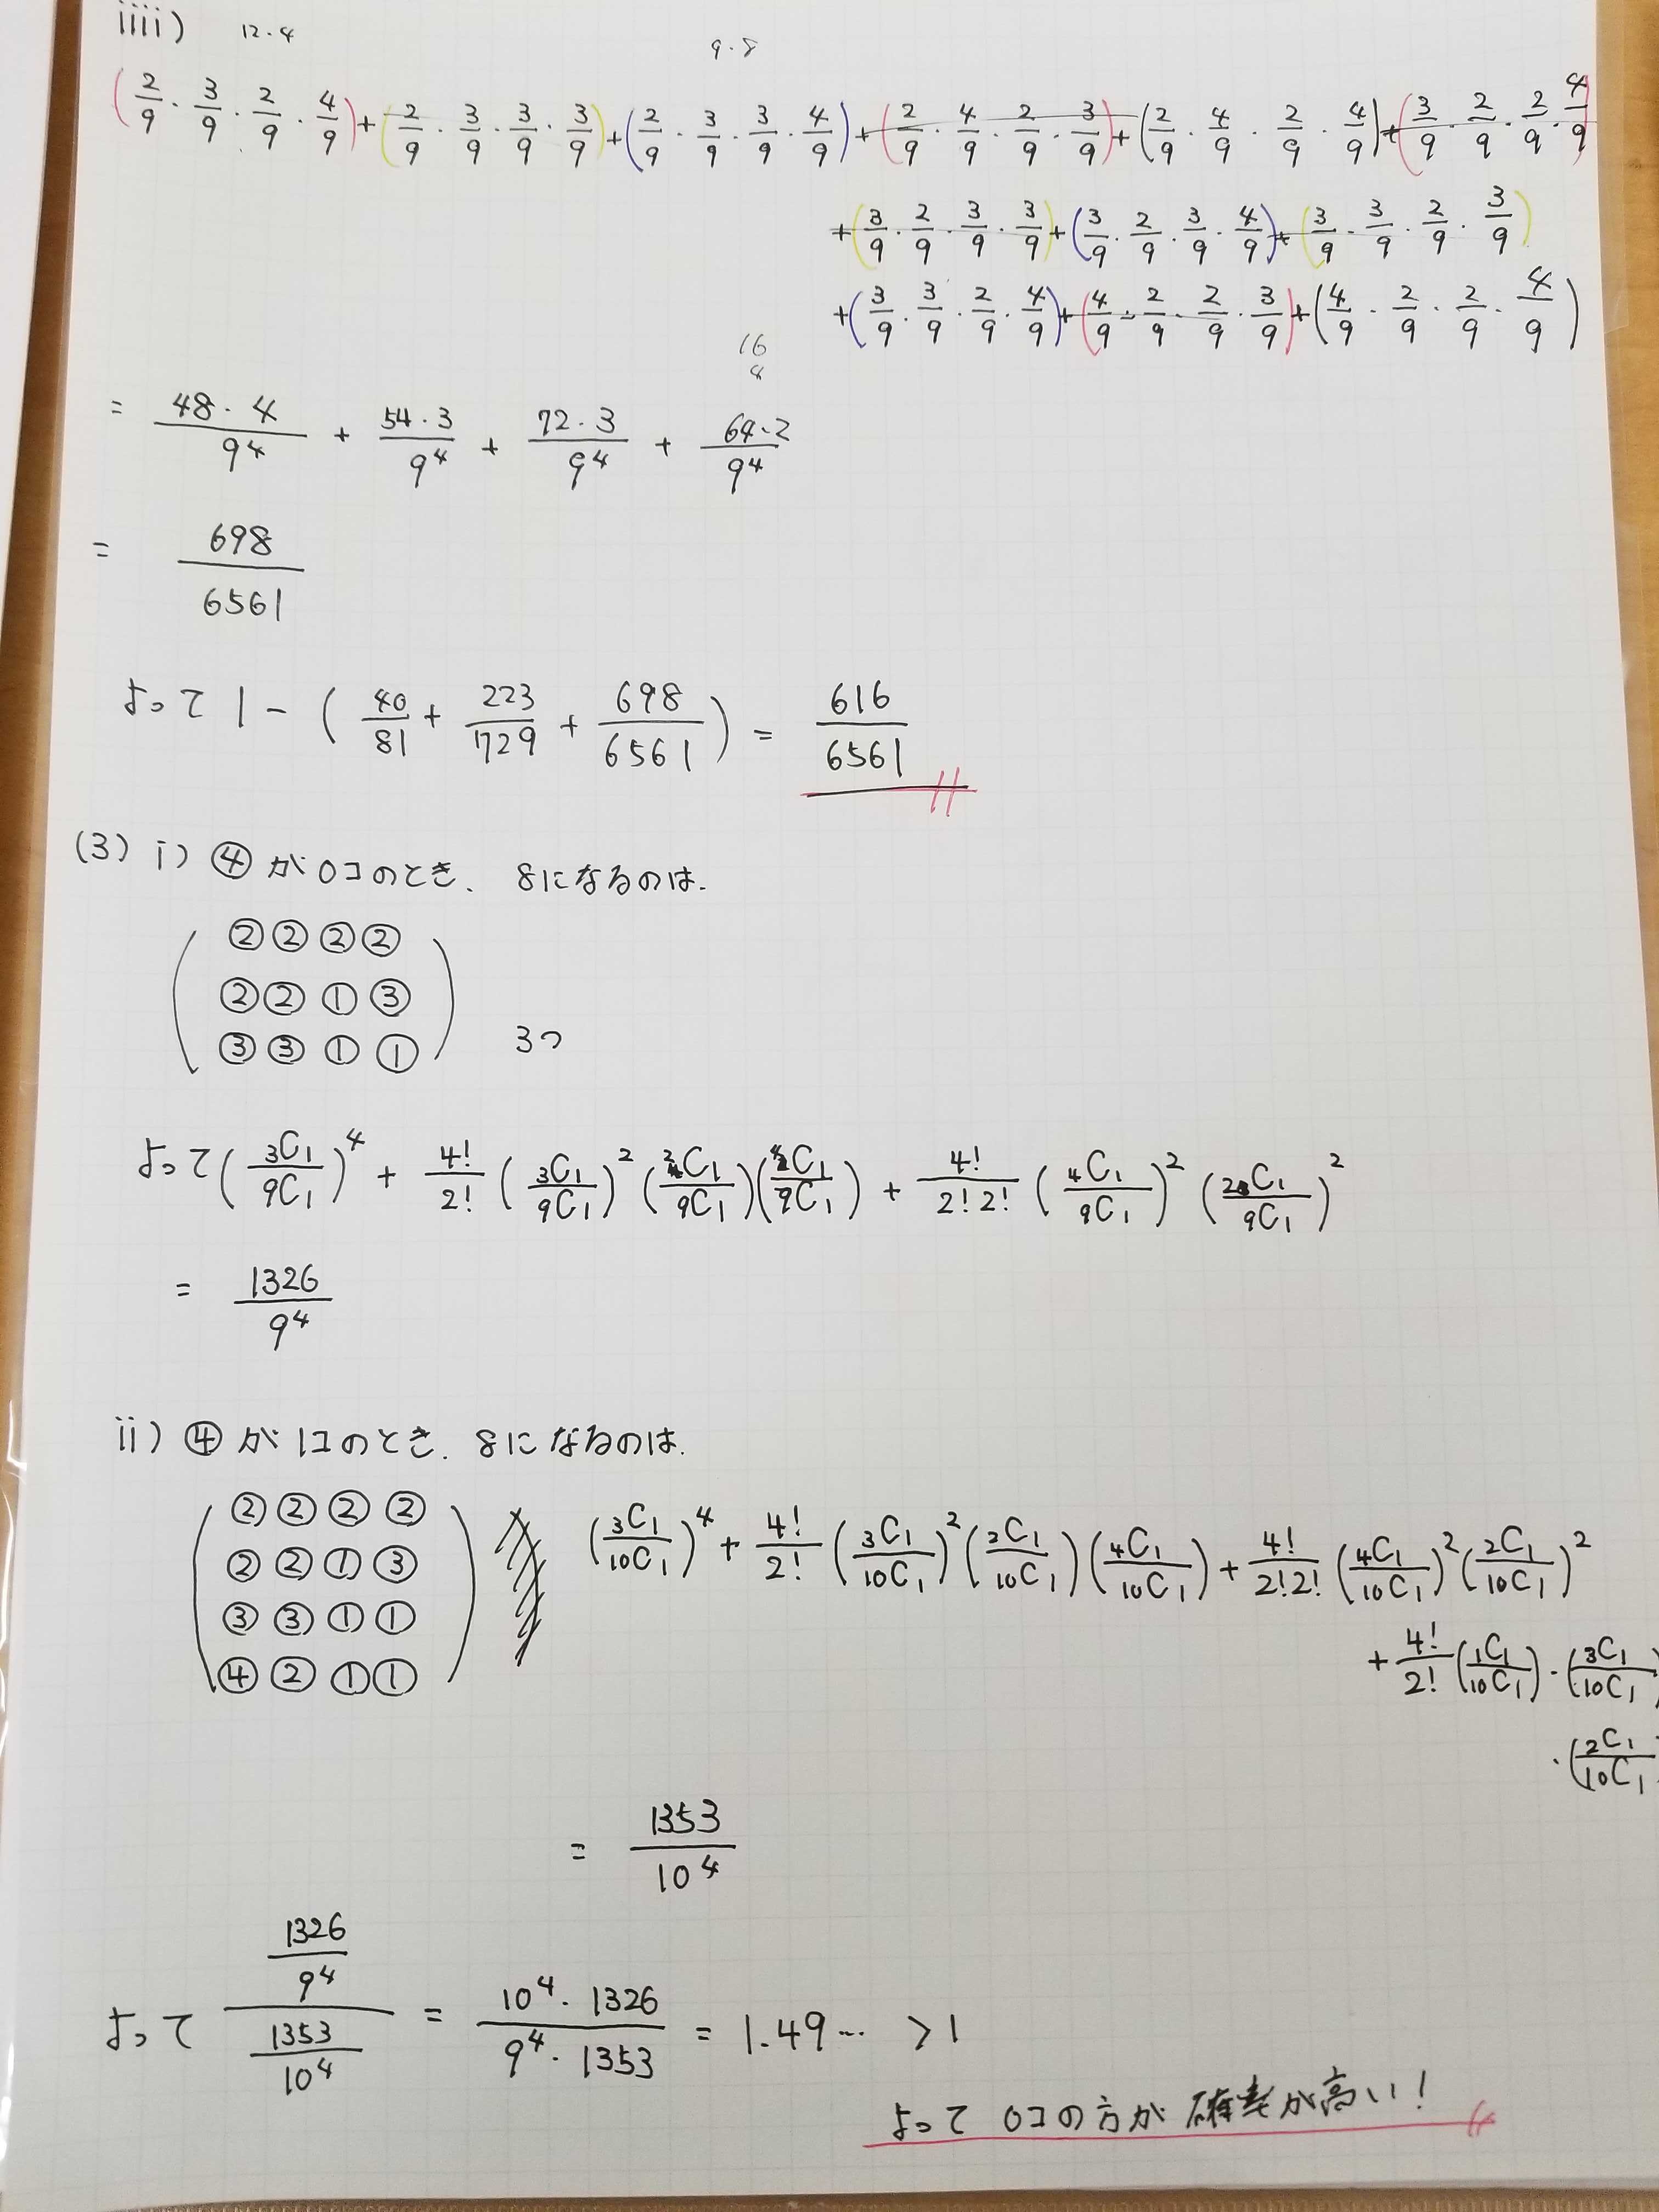 iiii) 12・4 9・8
(2/9・3/9・2/9・4/9)+(2/9・3/9・3/9・3/9)+(2/9・3/9・3/9・4/9)+(2/9・4/9・2/9・3/9)+(2/9・4/9・2/9・4/9)+(3/9・2/9・2/9・4/9)
+(3/9・2/9・3/9・3/9)+(3/9・2/9・3/9・4/9)+(3/9・3/9・2/9・3/9)
+(3/9・3/9・2/9・4/9)+(4/9・2/9・2/9・3/9)+(4/9・2/9・2/9・4/9)
16
4
= 48・4/9⁴ + 54・3/9⁴ + 72・3/9⁴ + 64・2/9⁴
= 698/6561
よって 1-(40/81+223/729+698/6561) = 616/6561
(3) i) ④が0コのとき、8になるのは、
②②②②
②②①③
③③①① 3つ
よって (₃C₁/₉C₁)⁴ + 4!/2! (₃C₁/₉C₁)² (₂C₁/₉C₁)(₄C₁/₉C₁) + 4!/2!2! (₄C₁/₉C₁)² (₂C₁/₉C₁)²
= 1326/9⁴
ii) ④が1コのとき、8になるのは、
②②②② (₃C₁/₁₀C₁)⁴ + 4!/2! (₃C₁/₁₀C₁)² (₂C₁/₁₀C₁)(₄C₁/₁₀C₁) + 4!/2!2! (₄C₁/₁₀C₁)² (₂C₁/₁₀C₁)²
②②①③
③③①① + 4!/2! (₁C₁/₁₀C₁)・(₃C₁/₁₀C₁)
④②①①
・(₂C₁/₁₀C₁
= 1353/10⁴
よって (1326/9⁴)/(1353/10⁴) = 10⁴・1326/9⁴・1353 = 1.49… >1
よって 0コの方が確率が高い!